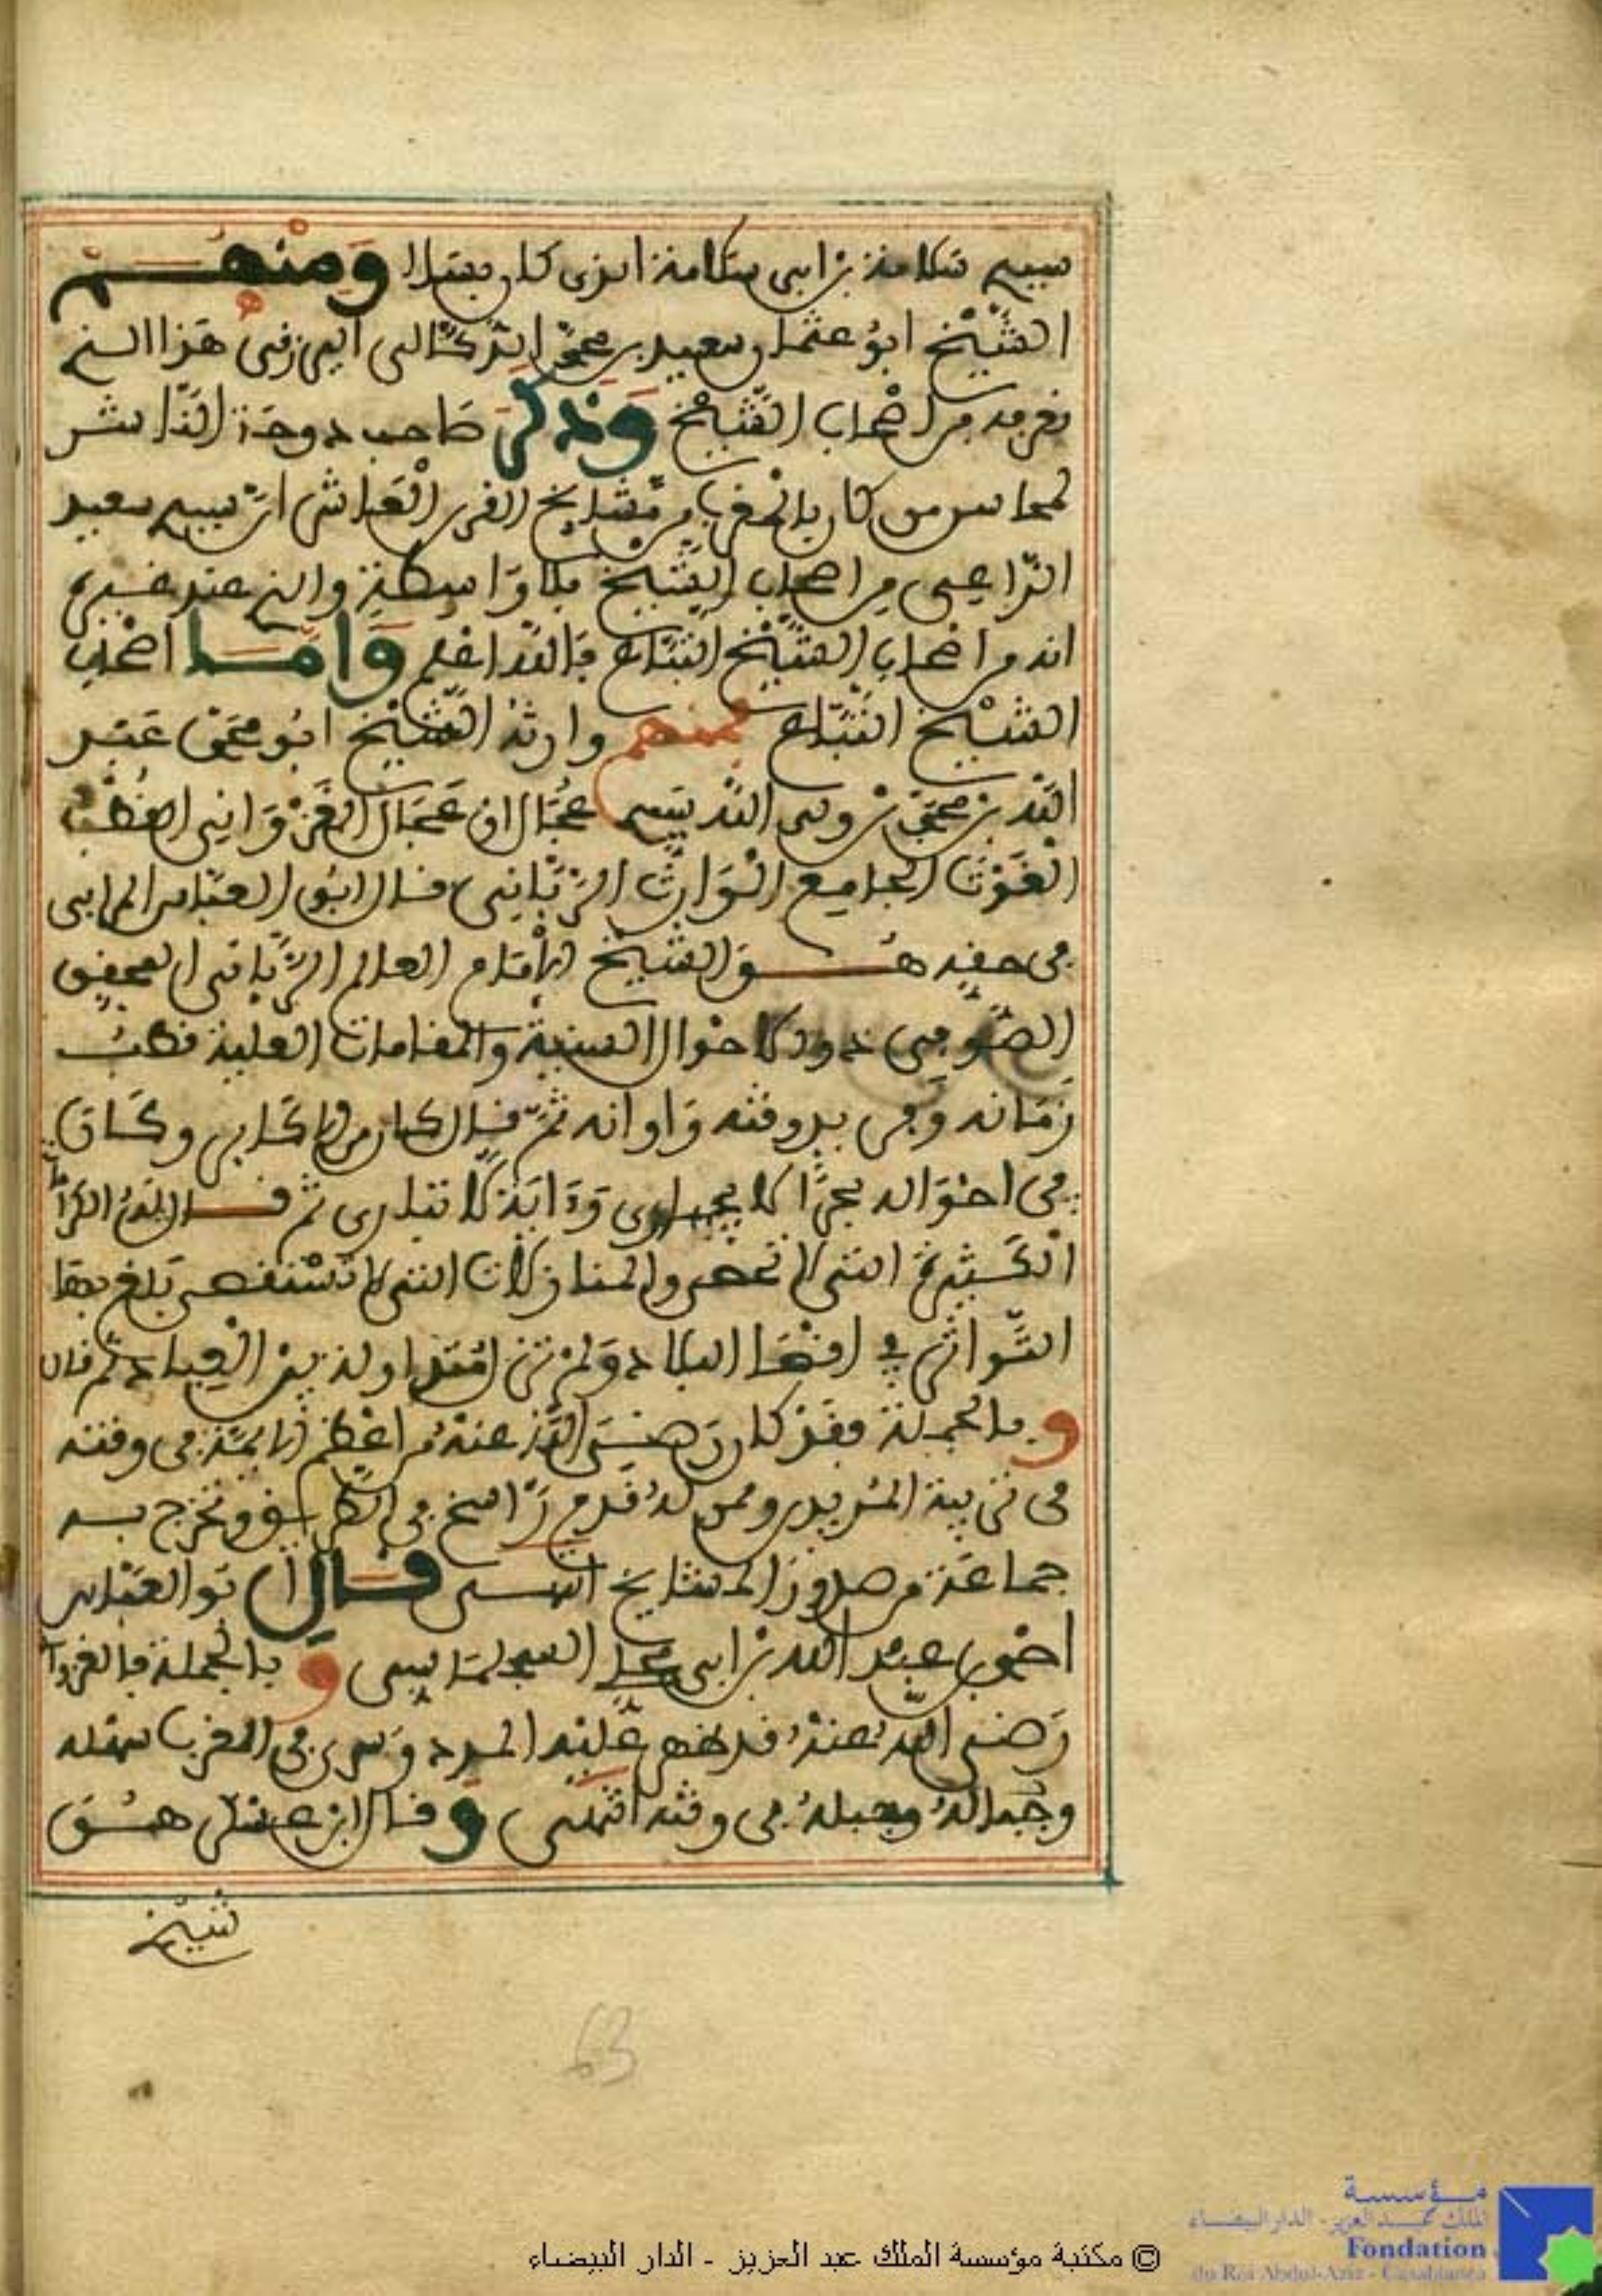 سيدي سلامة بن ابي سلامة الذي كان بسلا ومنهم
الشيخ ابو عثمان سعيد بن محمد الدكالي هذا الذي
نعرفه من اصحاب الشيخ وذكر صاحب دوحة الناشر
لمحاسن من كان بالمغرب من مشايخ القرن العاشر ان سيدي سعيد
الراعي من اصحاب الشيخ بلا واسطة والذي عند غيره
انه من اصحاب الشيخ التباع فالله اعلم واما اصحاب
الشيخ التباع فمنهم وارثه الشيخ ابو محمد عبد
الله بن محمد الشهير عجال ان عجال الغزواني القطب
الغوث الجامع الوارث الرباني قال ابو العباس المرابي
في حقه هو الشيخ الامام العالم الرباني المحقق
الصوفي ذو الاحوال السنية والمقامات العلية قطب
زمانه وفريد وقته واوانه ثم قال كان من الاكابر وكان
في احواله بحرا لا يجارى وءاية لا تبارى ثم قال له الكرامات
الكثيرة التي لا تحصر والمناولات التي لا تستقصى بلغ بها
التواتر في اقصا البلاد ولم تزل متداولة بين العباد ثم قال
وبالجملة فقد كان رضي الله عنه من اعظم الايمة في وقته
في تربية المريدين وممن له قدم راسخ في الطريق وتخرج به
جماعة من صدور المشايخ انتهى قال ابو العباس
احمد بن عبد الله بن ابي محلي السجلماسي وبالجملة فالغزواني
رضي الله عنه قد ظهر عليه المدد وسرى في المغرب سهله
وجباله وجبله في وقته انتهى وقال ابن عسكر هو
شيخ
63
© مكتبة مؤسسة الملك عبد العزيز - الدار البيضاء
مؤسسة
الملك عبد العزيز - الدار البيضاء
Fondation
du Roi Abdul-Aziz - Casablanca